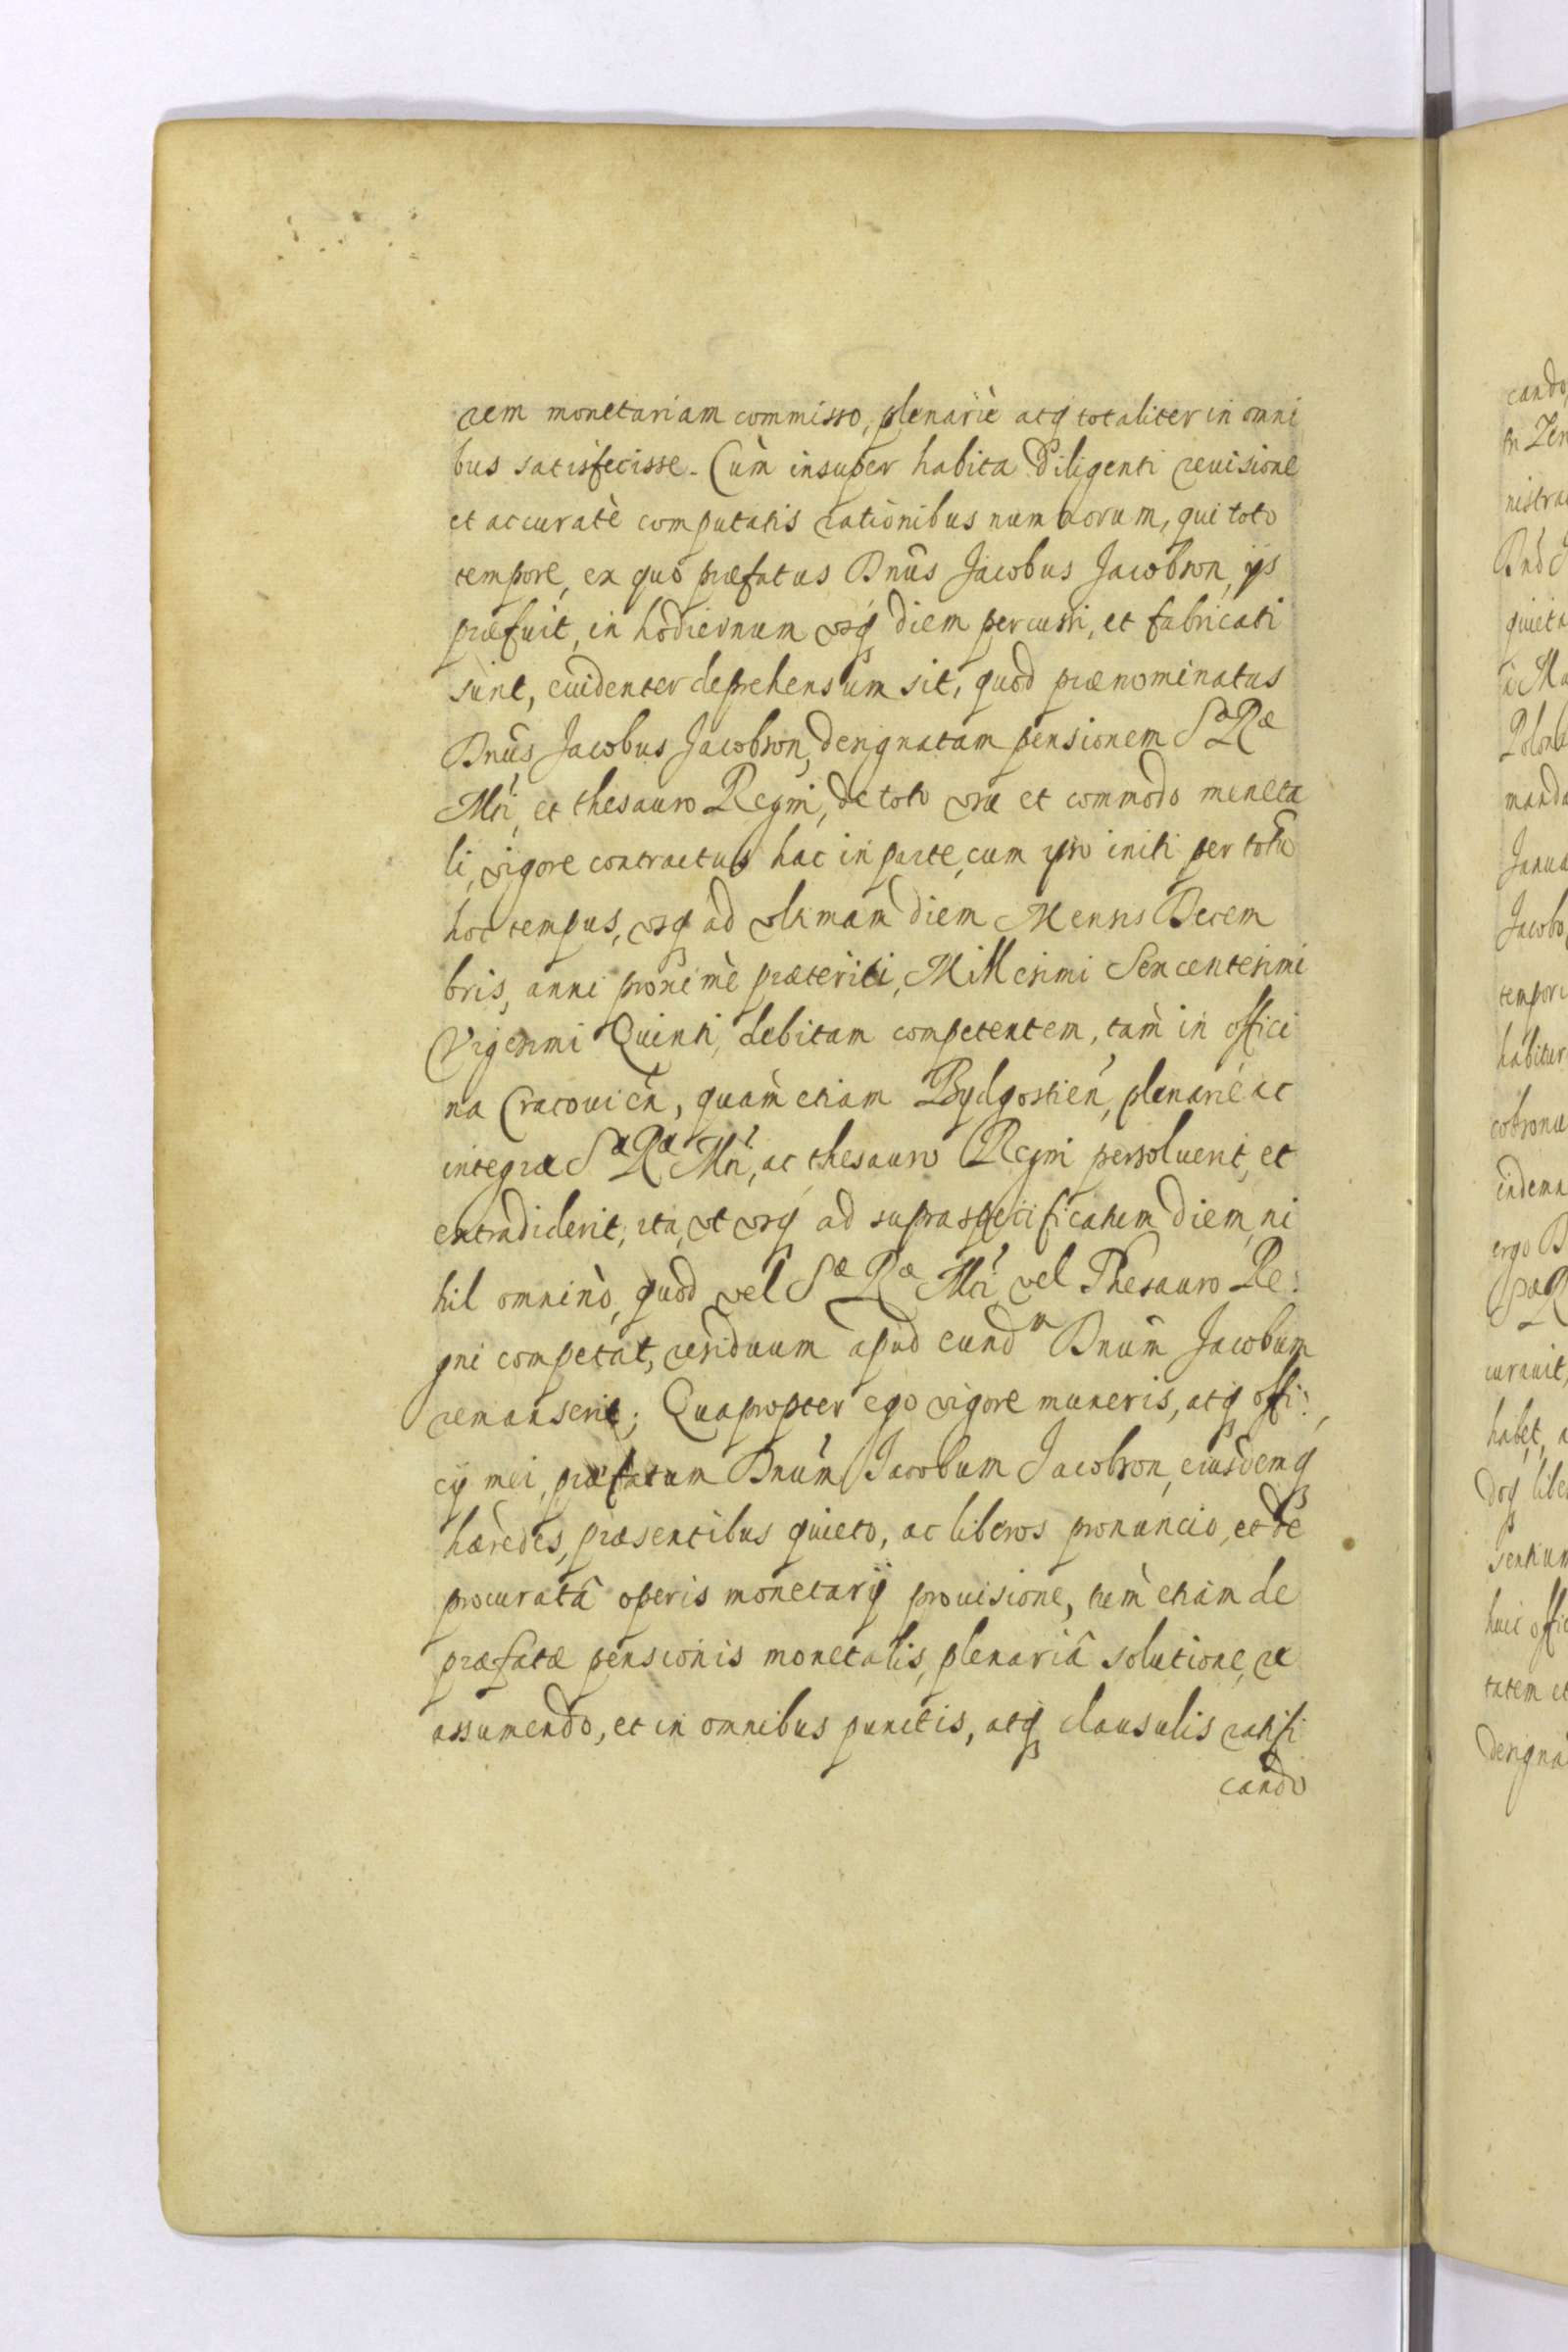 rem monetariam commisso, plenariè atq; totaliter in omni
bus satisfecisse. Cùm insuper habita diligenti reuisione
et accuratè computatis rationibus nummorum, qui toto
tempore, ex quò præfatus Dnus Jacobus Jacobson, ijs
præfuit, in hodiernum vsq; diem percussi, et fabricati
sunt, euidenter deprehensum sit, quod prænominatus
Dnus Jacobus Jacobson, designatam pensionem Sæ Ræ
Mti, et thesauro Regni, de toto vsu et commodo moneta
li, vigore contractus hac in parte, cum ipso initi per totu
hoc tempus, vsq; ad vltimam diem Mensis Decem
bris, anni proximè præteriti, Millesimi Sexcentesimi
Vigesimi Quinti, debitam competentem, tàm in offici
na Cracouien, quàm etiam Bydgostien, plenariè ac
integræ Sæ Ræ Mti, ac thesauro Regni persoluerit, et
extradiderit, ita, vt vsq; ad supraspecificatum diem, ni
hil omninò, quod vel Sæ Ræ Mti, vel Thesauro Re:
gni competat, residuum apud eundm Dnum Jacobum
remanserit; Quapropter ego vigore muneris, atq; offi:
cij mei, præfatum Dnum Jacobum Jacobson, eiusdemq;
hæredes, præsentibus quieto, ac liberos pronuncio, et de
procuratâ operis monetarij prouisione, tùm etiam de
præfatæ pensionis monetalis, plenariâ solutione, re
assumendo, et in omnibus punctis, atq; clausulis ratifi
cando
cando
nistra
Dnd J
quieta
Polon
manda
Janua
Jacobo
tempori
habitur
cobsonu
indemn
ergo D
Sæ R
curauit,
habet, a
doq; libe
sentium
huic offic
tatem et
designa